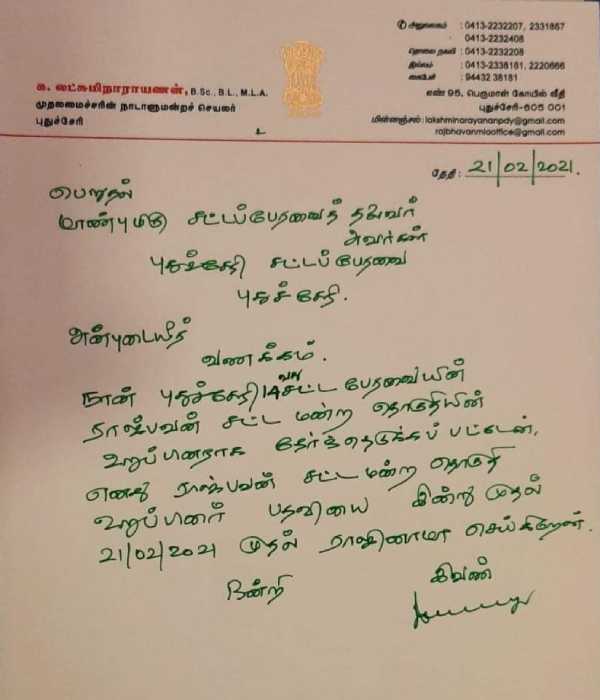 அலுவலகம் : 0413-2232207, 2331867
0413-2232408
தொலை நகல் : 0413-2232208
இல்லம் : 0413-2338181, 2220666
கைபேசி : 94432 38181
எண் 95, பெருமாள் கோயில் வீதி
புதுச்சேரி-605 001
மின்னஞ்சல் : lakshminarayananpdy@gmail.com
rajbhavanmlaoffice@gmail.com
க. லட்சுமிநாராயணன், B.Sc., B.L., M.L.A.
முதலமைச்சரின் நாடாளுமன்றச் செயலர்
புதுச்சேரி
தேதி : 21/02/2021.
பெறுதல்
மாண்புமிகு சட்டப்பேரவைத் தலைவர்
அவர்கள்
புதுச்சேரி சட்டப் பேரவை
புதுச்சேரி.
அன்புடையீர்
வணக்கம்.
நான் புதுச்சேரி 14வது சட்ட பேரவையின்
ராஜ்பவன் சட்ட மன்ற தொகுதியின்
உறுப்பினராக தேர்ந்தெடுக்கப் பட்டேன்.
எனது ராஜ்பவன் சட்ட மன்ற தொகுதி
உறுப்பினர் பதவியை இன்று முதல்
21/02/2021 முதல் ராஜினாமா செய்கிறேன்.
நன்றி இவண்